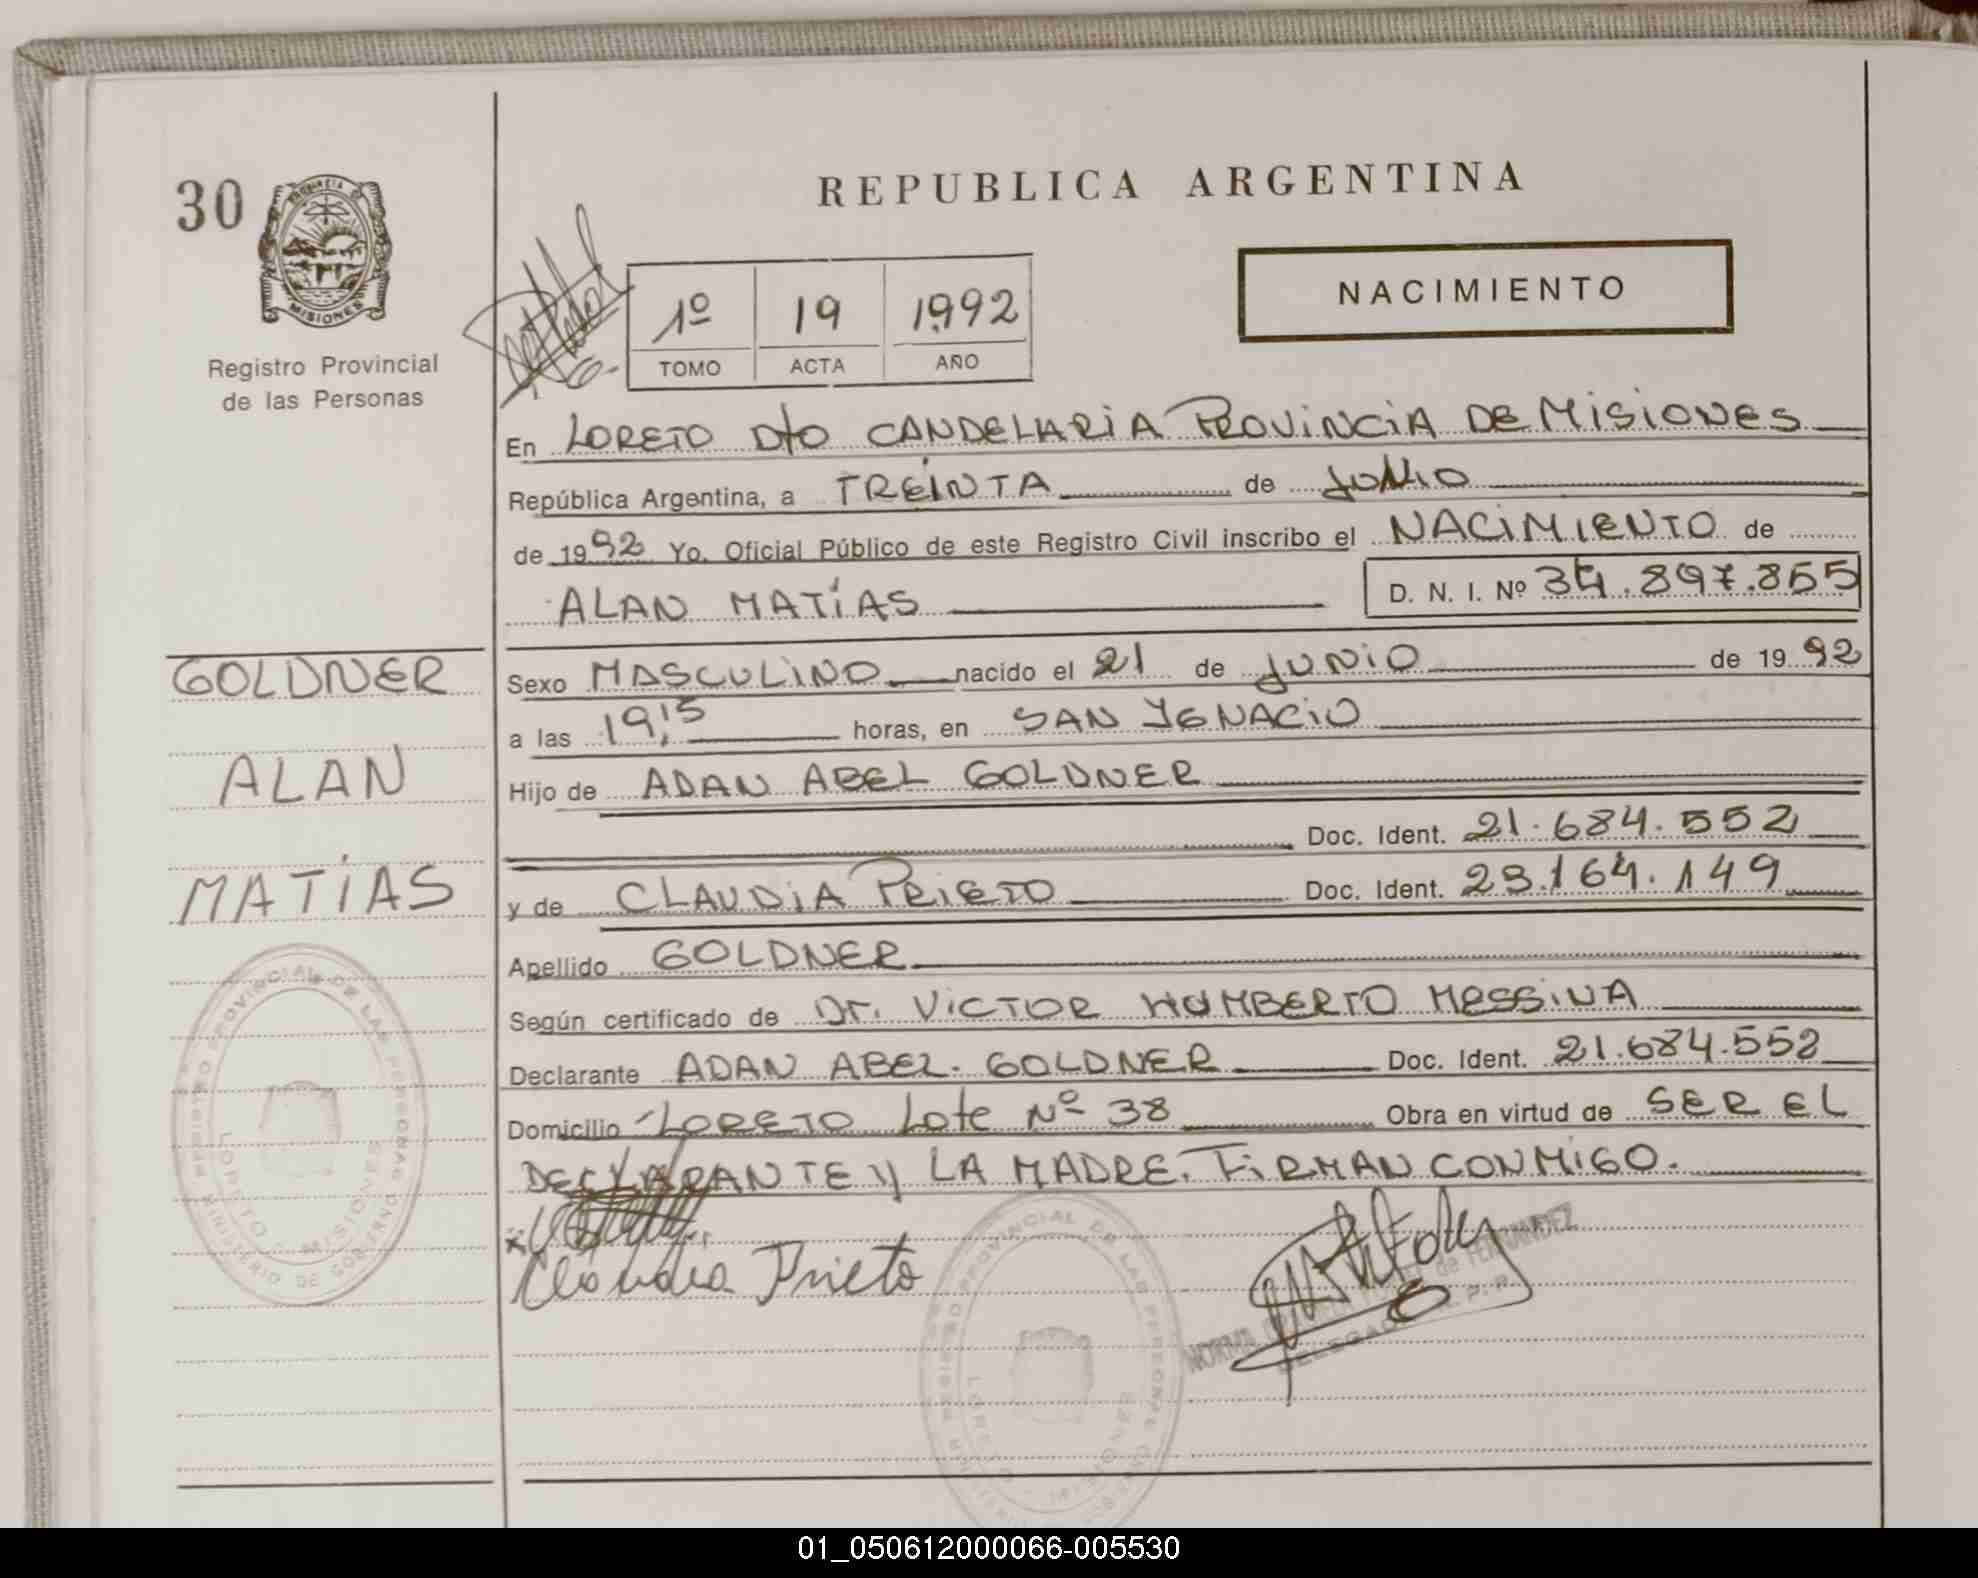 REPUBLICA ARGENTINA
30
PROVINCIA DE
MISIONES
Registro Provincial
de las Personas
1º 19 1992
TOMO ACTA AÑO
NACIMIENTO
En LORETO Dto CANDELARIA PROVINCIA DE MISIONES
República Argentina, a TREINTA de
de 1992 Yo, Oficial Público de este Registro Civil inscribo el NACIMIENTO de
ALAN MATÍAS D. N. I. Nº 34.897.855
GOLDNER
ALAN
MATÍAS
Sexo MASCULINO nacido el 21 de JUNIO de 1992
a las 19,15 horas, en SAN YGNACIO
Hijo de ADAN ABEL GOLDNER
Doc. Ident. 21.684.552
y de CLAUDIA PRIETO Doc. Ident. 23.164.149
Apellido GOLDNER
Según certificado de Dr. VICTOR HUMBERTO MESSINA
Declarante ADAN ABEL. GOLDNER Doc. Ident. 21.684.552
Domicilio LORETO Lote Nº 38 Obra en virtud de SER EL
DECLARANTE Y LA MADRE. FIRMAN CONMIGO.
Claudia Prieto
NORMA de FERNANDEZ
MINISTERIO DE GOBIERNO
REGISTRO PROVINCIAL DE LAS PERSONAS
LORETO - MISIONES
REGISTRO PROVINCIAL DE LAS PERSONAS
LORETO MISIONES
01_050612000066-005530